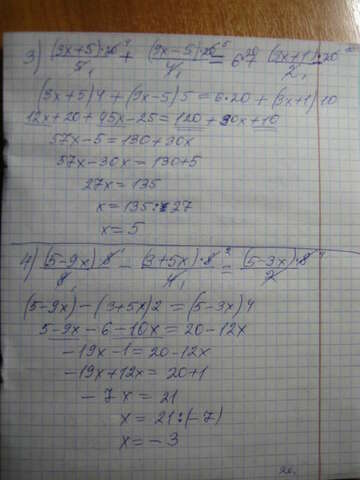 3) (3x+5)·20⁴/5₁ + (9x-5)·20⁵/4₁ = 6·20 + (3x+1)·20¹⁰/2₁
(3x+5)4+(9x-5)5=6·20+(3x+1)10
12x+20+45x-25=120+30x+10
57x-5=130+30x
57x-30x=130+5
27x=135
x=135:27
x=5
4) (5-9x)·8¹/8 - (3+5x)·8²/4₁ = (5-3x)·8⁴/2
(5-9x)-(3+5x)2=(5-3x)4
5-9x-6-10x=20-12x
-19x-1=20-12x
-19x+12x=20+1
-7x=21
x=21:(-7)
x=-3